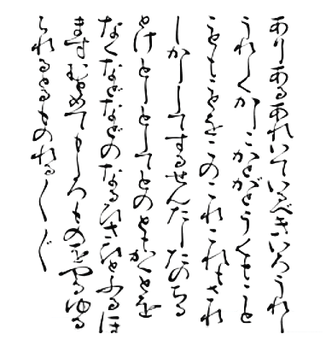 ありあるあれいているべきいろうれし
うれしくかしこかとがどうくもこと
こともことをこのこれこれもされ
しかしてするせんたしたのちる
とけとしとしてとのともかくとを
なくなどなどのなるひさひとふるほ
ますむめてもしろものをやるゆる
られるとるものれる〱〲